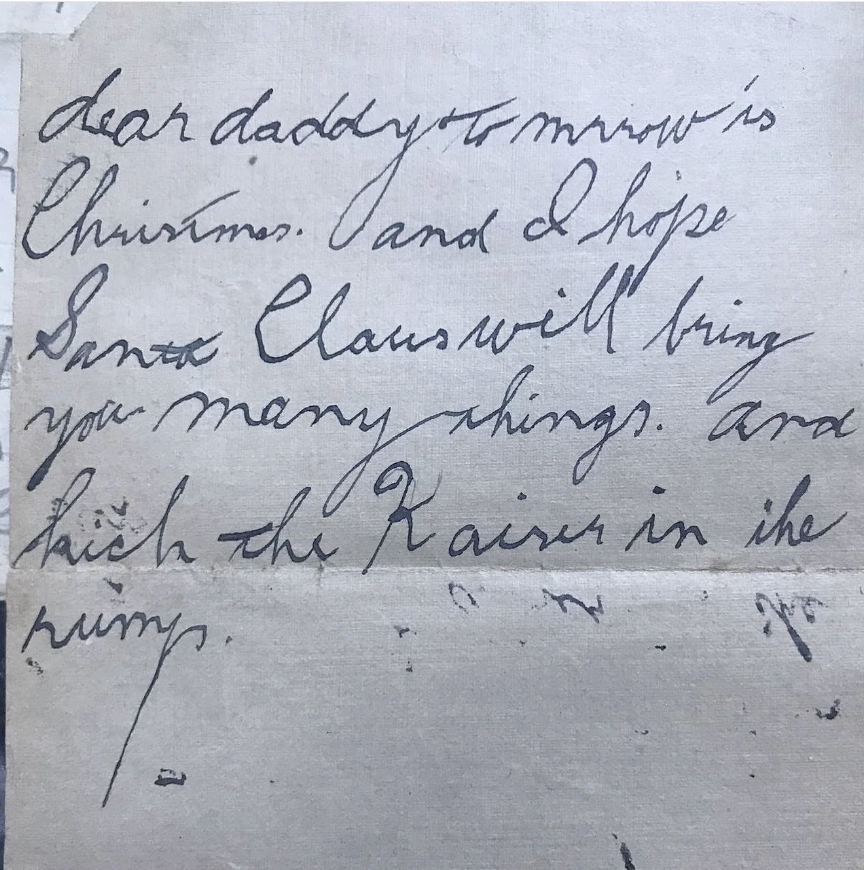 dear daddy to mrrow is
Christmas. and I hope
Santa Claus will bring
you many things. and
kick the Kaiser in the
rump.